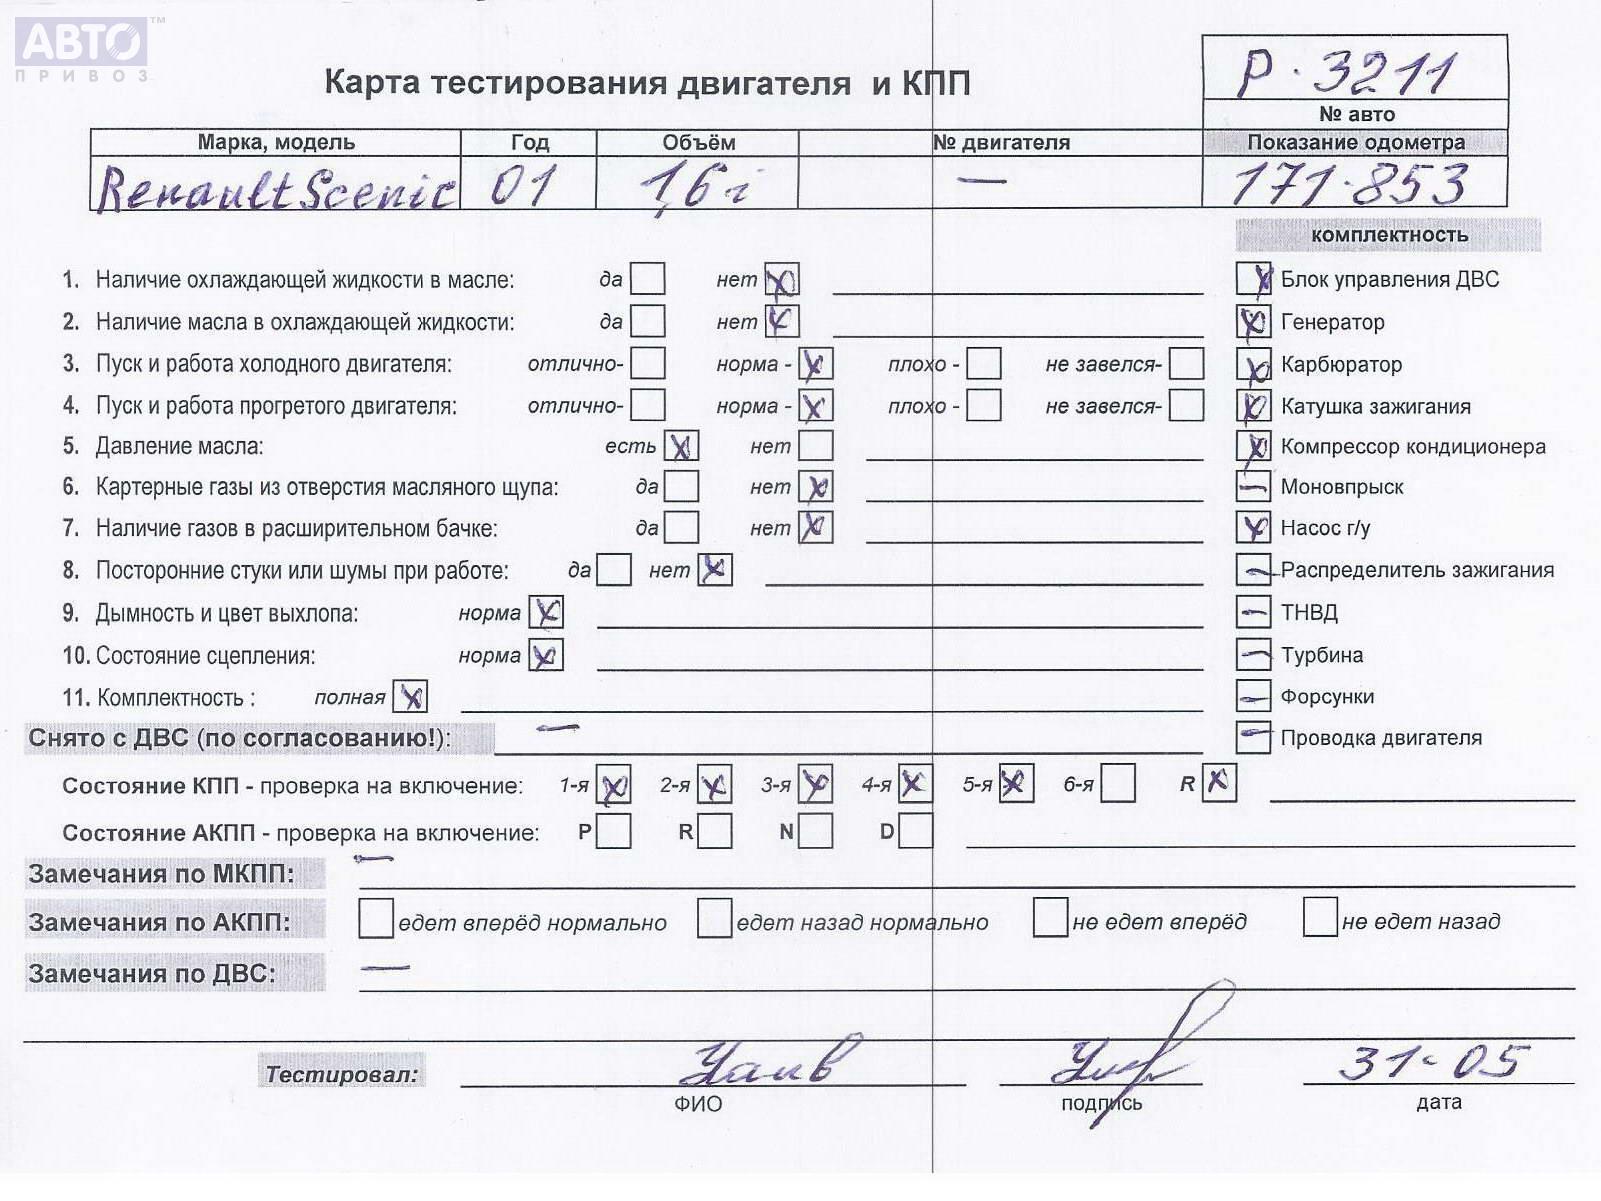 АВТО™
ПРИВОЗ
Р-3211
Карта тестирования двигателя и КПП
№ авто
Марка, модель Год Объём № двигателя Показание одометра
Renault Scenic 01 1,6 i — 171.853
комплектность
1. Наличие охлаждающей жидкости в масле: да нет Блок управления ДВС
2. Наличие масла в охлаждающей жидкости: да нет Генератор
3. Пуск и работа холодного двигателя: отлично- норма - плохо - не завелся- Карбюратор
4. Пуск и работа прогретого двигателя: отлично- норма - плохо - не завелся- Катушка зажигания
5. Давление масла: есть нет Компрессор кондиционера
6. Картерные газы из отверстия масляного щупа: да нет Моновпрыск
7. Наличие газов в расширительном бачке: да нет Насос г/у
8. Посторонние стуки или шумы при работе: да нет Распределитель зажигания
9. Дымность и цвет выхлопа: норма ТНВД
10. Состояние сцепления: норма Турбина
11. Комплектность : полная Форсунки
Снято с ДВС (по согласованию!): — Проводка двигателя
Состояние КПП - проверка на включение: 1-я 2-я 3-я 4-я 5-я 6-я R
Состояние АКПП - проверка на включение: P R N D
Замечания по МКПП: —
Замечания по АКПП: едет вперёд нормально едет назад нормально не едет вперёд не едет назад
Замечания по ДВС: —
Тестировал: 31-05
ФИО подпись дата